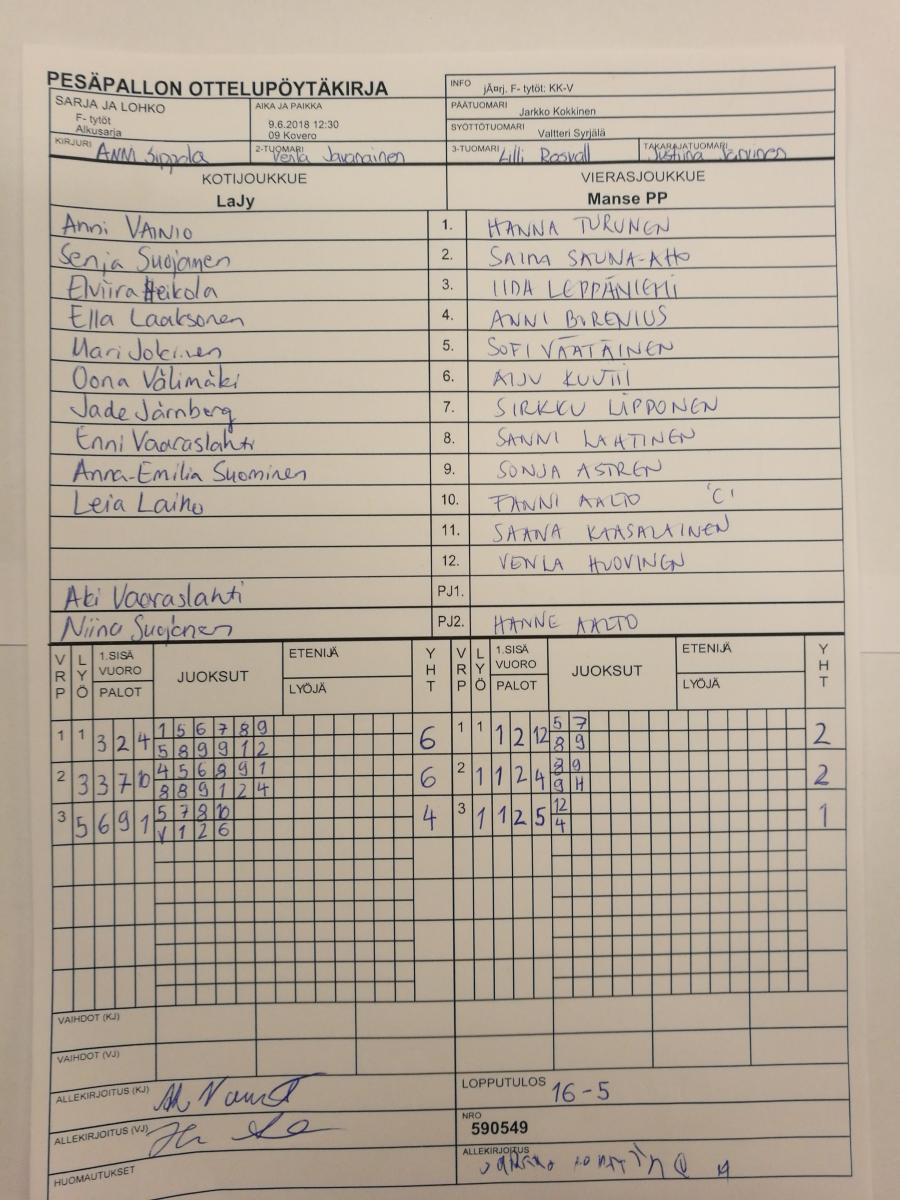 PESÄPALLON OTTELUPÖYTÄKIRJA
INFO jÃ¤rj. F- tytöt: KK-V
SARJA JA LOHKO
F- tytöt
Alkusarja
AIKA JA PAIKKA
9.6.2018 12:30
09 Kovero
PÄÄTUOMARI Jarkko Kokkinen
SYÖTTÖTUOMARI Valtteri Syrjälä
KIRJURI Anni Sippola
2-TUOMARI Venla Javanainen
3-TUOMARI Lilli Rosvall
TAKARAJATUOMARI Justiina Järvinen
KOTIJOUKKUE VIERASJOUKKUE
LaJy Manse PP
Anni VAINIO 1. HANNA TURUNEN
Senja Suojanen 2. SAIMA SAUNA-AHO
Elviira Heikola 3. IIDA LEPPÄNIEMI
Ella Laaksonen 4. ANNI BURENIUS
Mari Jokinen 5. SOFI VÄÄTÄINEN
Oona Välimäki 6. AIJU KUUTTI
Jade Järnberg 7. SIRKKU LIPPONEN
Enni Vaaraslahti 8. SANNI LAHTINEN
Anna-Emilia Suominen 9. SONJA ASTREN
Leia Laiho 10. FANNI AALTO 'C'
11. SAANA KAASALAINEN
12. VENLA HUOVINEN
Aki Vaaraslahti PJ1.
Niina Suojanen PJ2. HANNE AALTO
VRP LYÖ 1.SISÄ VUORO PALOT JUOKSUT ETENIJÄ LYÖJÄ YHT VRP LYÖ 1.SISÄ VUORO PALOT JUOKSUT ETENIJÄ LYÖJÄ YHT
1 1 3 2 4 1 5 6 7 8 9 6 1 1 1 2 12 5 7 2
5 8 9 9 1 2 8 9
2 3 3 7 10 4 5 6 8 9 1 6 2 1 1 2 4 8 9 2
8 8 9 1 2 4 9 H
3 5 6 9 1 5 7 8 10 4 3 1 1 2 5 12 1
V 1 2 6 4
VAIHDOT (KJ)
VAIHDOT (VJ)
ALLEKIRJOITUS (KJ)
LOPPUTULOS 16-5
ALLEKIRJOITUS (VJ)
NRO
590549
HUOMAUTUKSET
ALLEKIRJOITUS